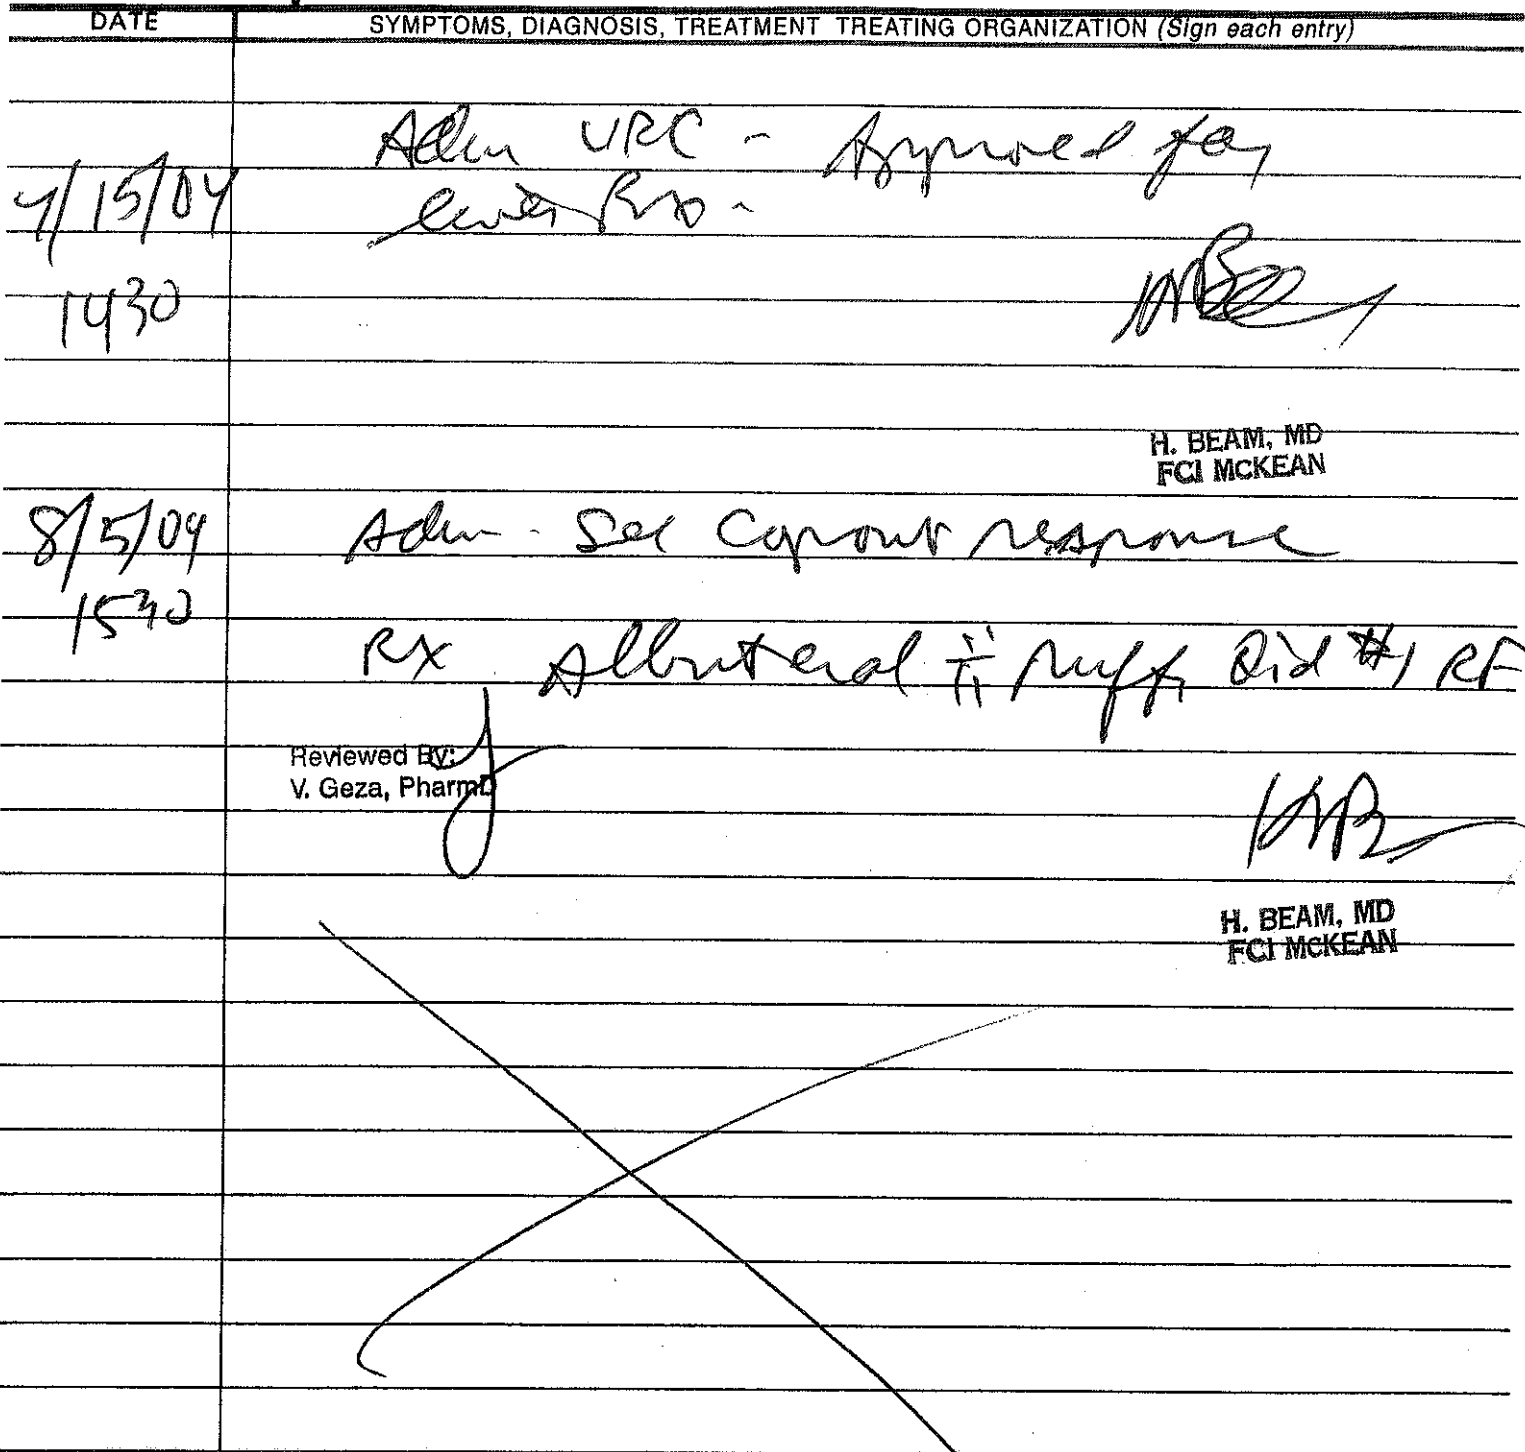 DATE SYMPTOMS, DIAGNOSIS, TREATMENT TREATING ORGANIZATION (Sign each entry)
Adm URC - Approved for
7/15/04
1430
H. BEAM, MD
FCI McKEAN
8/5/04 Adm - See Copout response
1530
RX Albuterol ii puffs Qid #1 RF
Reviewed By:
V. Geza, PharmD
H. BEAM, MD
FCI McKEAN